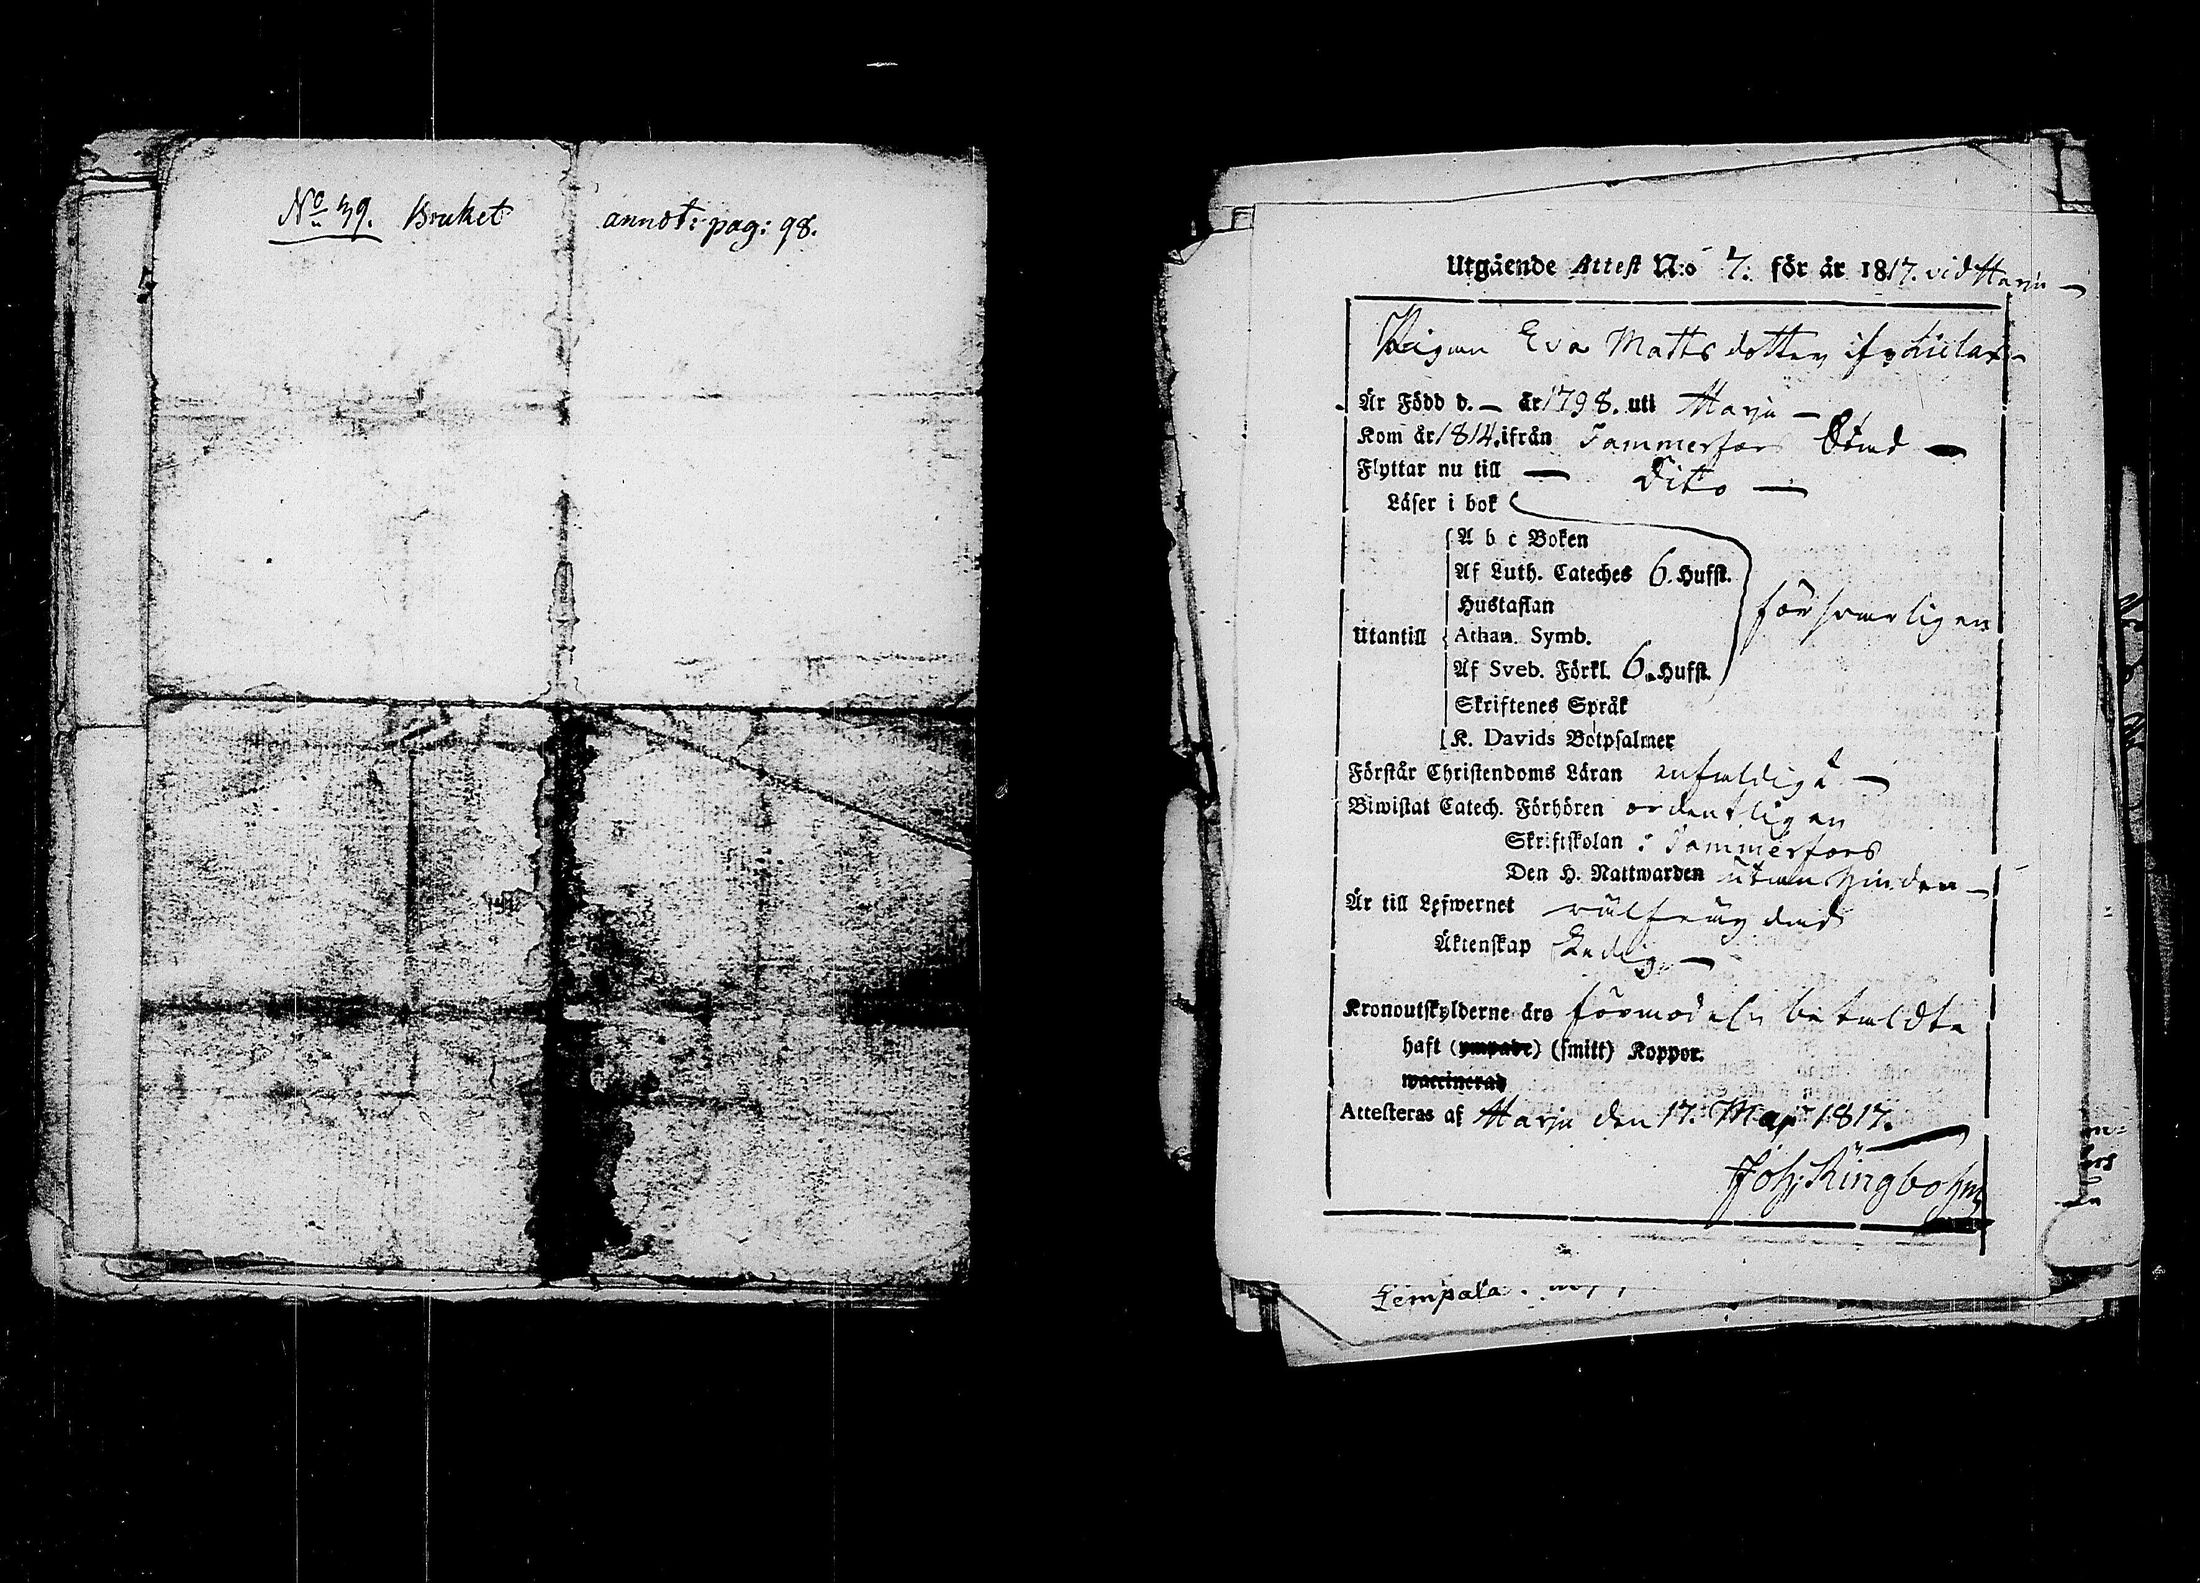 No 39. Bruket annot: pag: 98.
Utgående Attest N:o 7. för år 1817. vid Harju
Pigan Eva Matts dotter ifr.
Är Född d. — år 1798. uti Harju —
Kom år 1814. ifrån Tammerfors Stad —
Flyttar nu till — Dito —
Läser i bok
A b c Boken
Af Luth. Cateches 6. Hufst.
Hustaflan
försvarligen
Utantill Athan. Symb.
Af Sveb. Förkl. 6. Hufst.
Skriftenes Språk
K. Davids Botpsalmer
Förstår Christendoms Läran enfaldigt —
Biwistat Catech. Förhören ordentligen
Skriftskolan i Tammerfors
Den H. Nattwarden utan hinder —
Är till Lefwernet välfrägdad
Äktenskap Ledig —
Kronoutskylderne äro förmodel. betaldte
haft (ympade) (smitt) Koppor.
waccinerad
Attesteras af Harju den 17. Maji 1817.
Joh: Ringbohm
Lempälä.